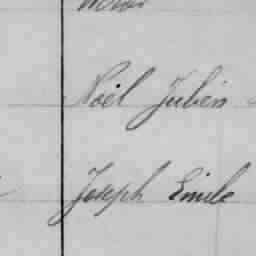 Noël Julien
Joseph Emile